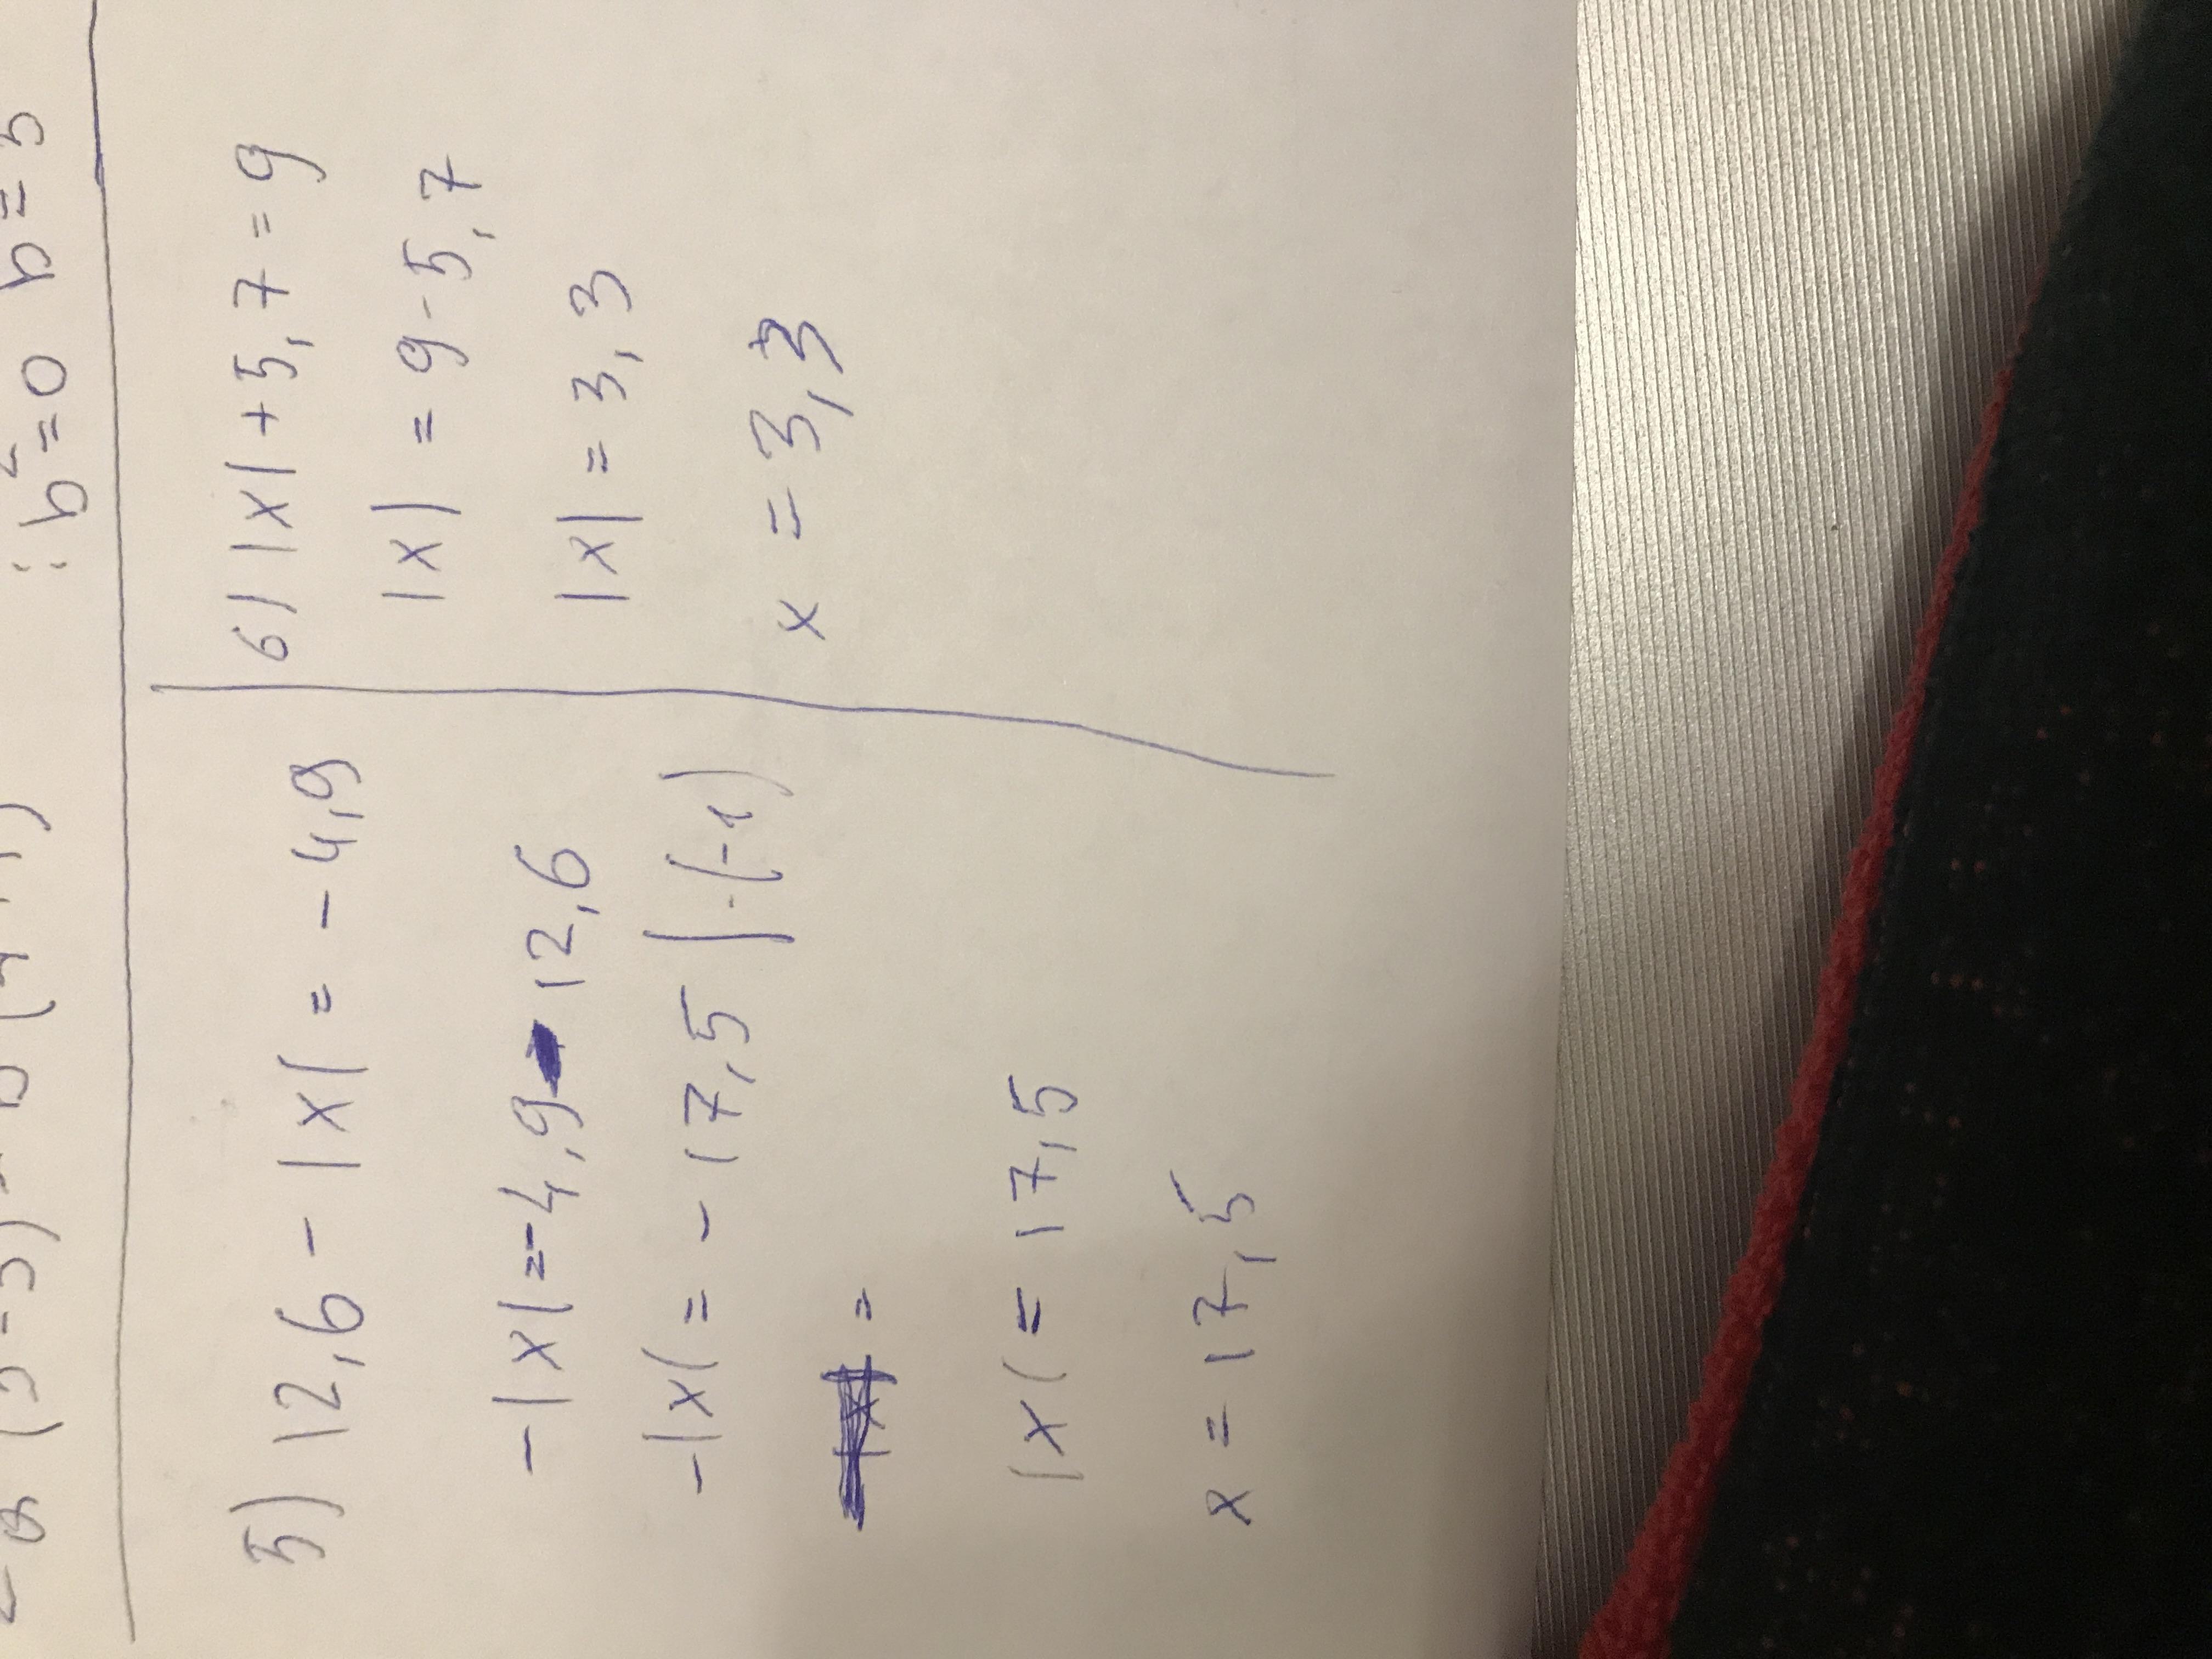 :b²=0 b=5
5) 12,6 - |x| = - 4,9
-|x|=-4,9-12,6
-|x| = - 17,5 |·(-1)
=
|x| = 17,5
x = 17,5
6) |x| + 5,7 = 9
|x| = 9 - 5,7
|x| = 3,3
x = 3,3